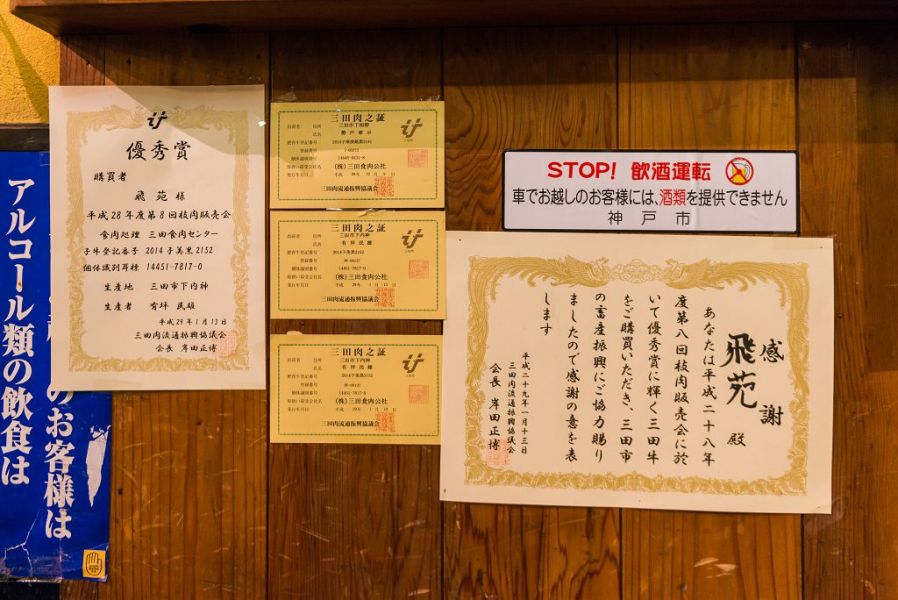 優秀賞
購買者
飛苑 様
平成28年度第8回枝肉販売会
食肉処理 三田食肉センター
子牛登記番号 2014子美黒2152
個体識別耳標 14451-7817-0
生産地 三田市下内神
生産者 有坪 民雄
平成29年1月13日
三田肉流通振興協議会
会長 岸田正博
三田肉之証
(株)三田食肉公社
三田肉流通振興協議会
三田肉之証
三田市下内神
有坪民雄
(株)三田食肉公社
三田肉流通振興協議会
三田肉之証
三田市下内神
有坪民雄
(株)三田食肉公社
三田肉流通振興協議会
STOP! 飲酒運転
車でお越しのお客様には、酒類を提供できません
神戸市
感謝
飛苑 殿
あなたは平成二十八年
度第八回枝肉販売会に於
いて優秀賞に輝く三田牛
をご購買いただき、三田市
の畜産振興にご協力賜り
ましたので感謝の意を表
します
平成二十九年一月十三日
三田肉流通振興協議会
会長 岸田正博
のお客様は
アルコール類の飲食は